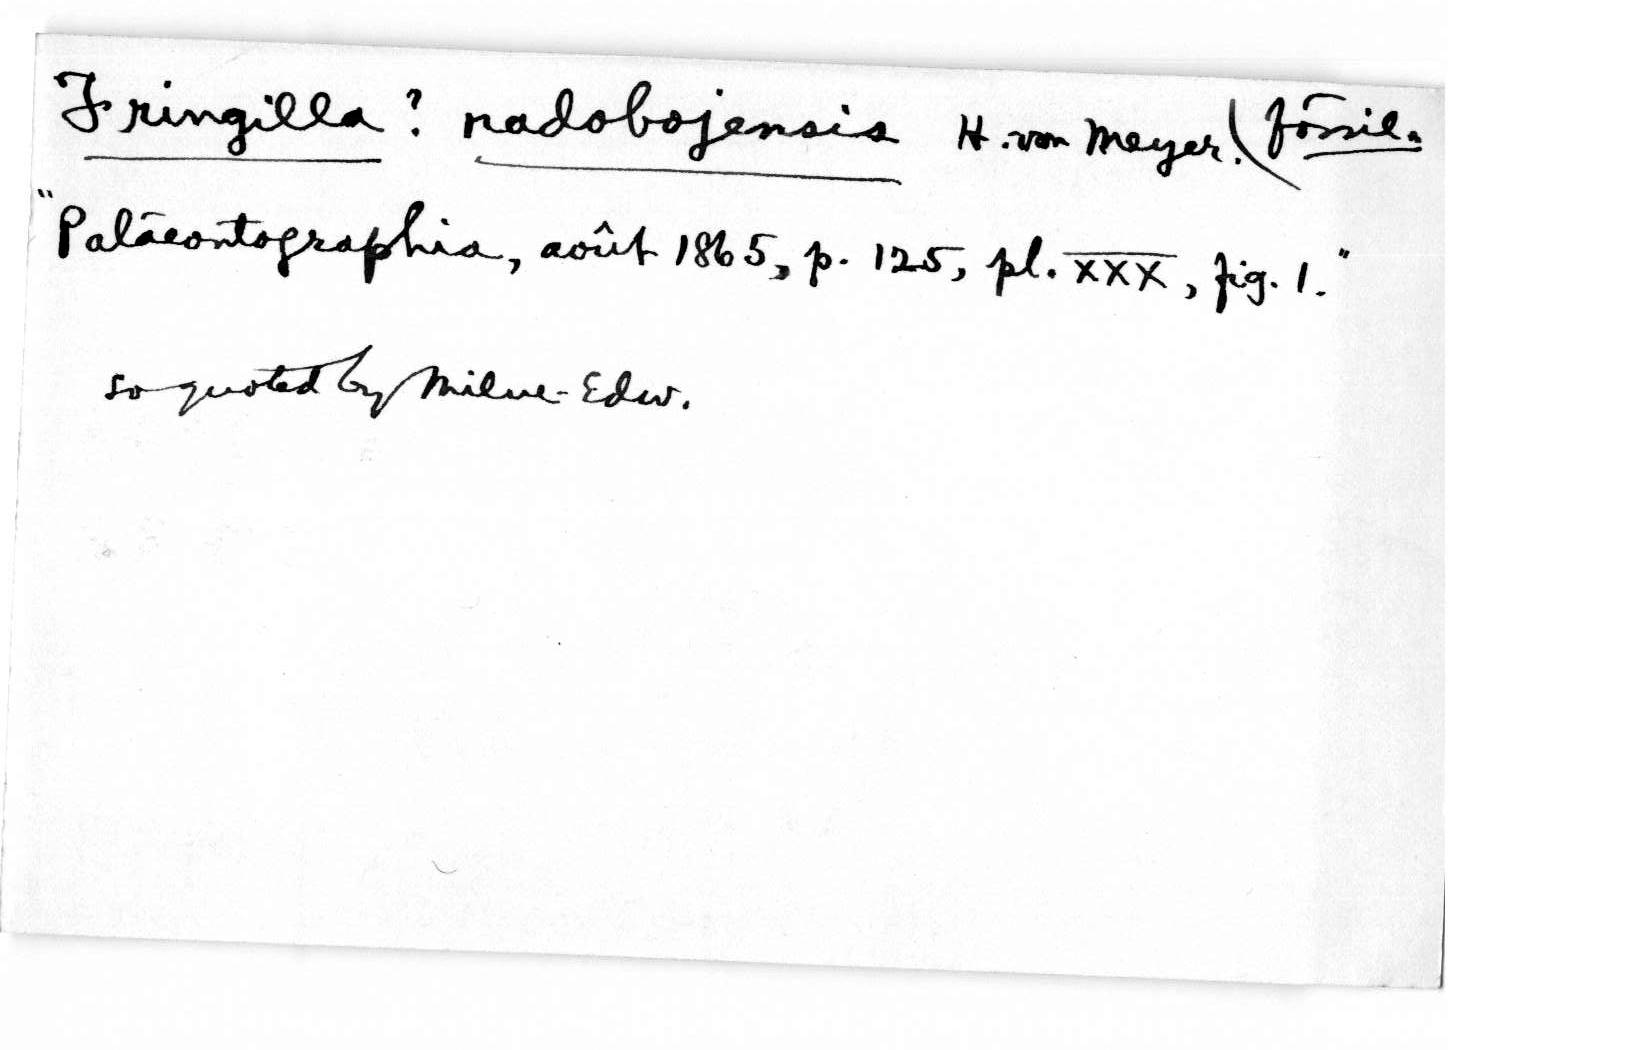 Fringilla? radobojensis H. von Meyer. ( fossil.
"Paläeontographia, août 1865, p. 125, pl. XXX, fig. 1."
so quoted by Milne-Edw.